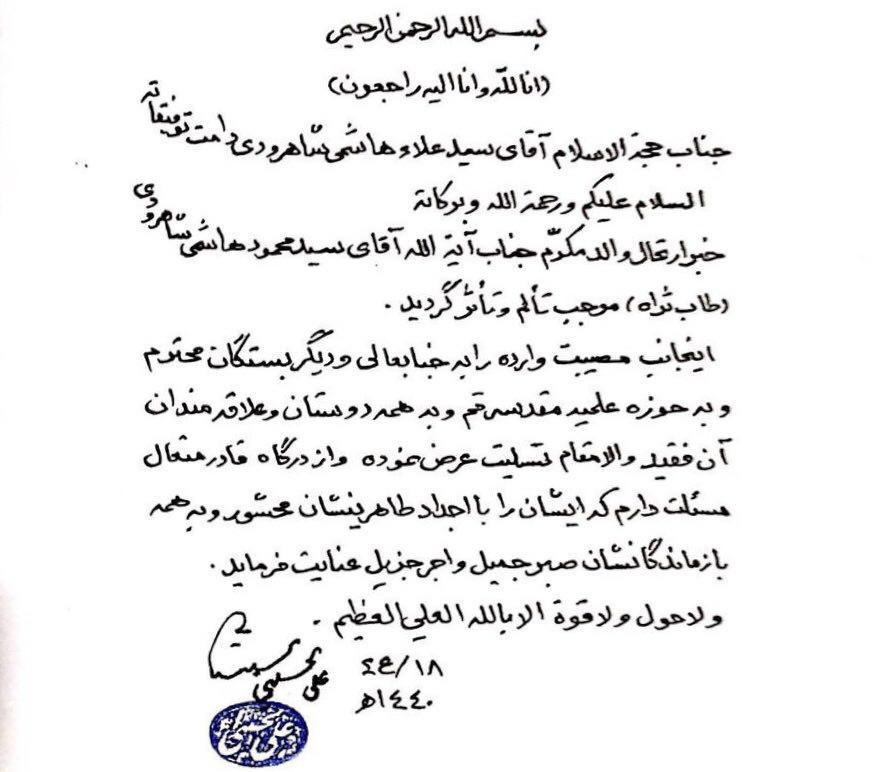 بسم الله الرحمن الرحیم
(انا لله وانا الیه راجعون)
جناب حجة الاسلام آقای سید علاء هاشمی شاهرودی دامت توفیقاته
السلام علیکم ورحمة الله وبرکاته
خبر ارتحال والد مکرّم جناب آیة الله آقای سید محمود هاشمی شاهرودی
(طاب ثراه) موجب تألم وتأثر گردید .
اینجانب مصیبت وارده را به جنابعالی و دیگر بستگان محترم
و به حوزه علمیه مقدسه قم و به همه دوستان و علاقه مندان
آن فقید والامقام تسلیت عرض نموده و از درگاه قادر متعال
مسئلت دارم که ایشان را با اجداد طاهرینشان محشور و به همه
بازماندگانشان صبر جمیل و اجر جزیل عنایت فرماید .
ولا حول ولا قوة الا بالله العلي العظیم .
١٨/ع٢
١٤٤٠هـ
علي الحسیني السیستاني